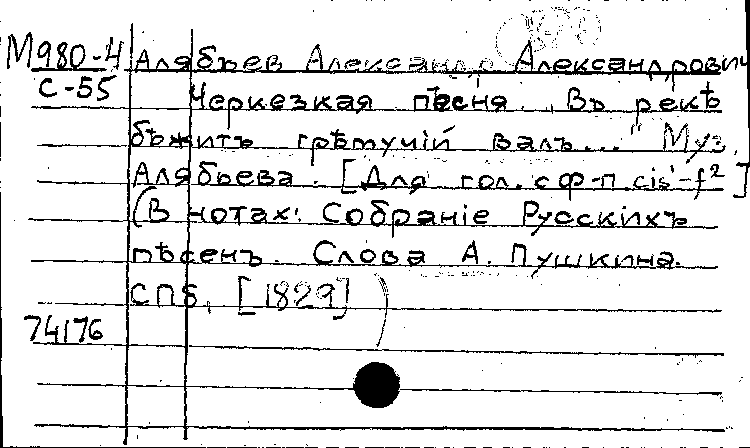 М980-4 Алябьев Александр Александрович
С-55 Черкезкая пѣсня „Въ рекѣ
бѣжитъ грѣмучій валъ..." Муз.
Алябьева. [Для гол. с ф-п. cis'-f²]
(В нотах: Собраніе Русскихъ
пѣсенъ. Слова А. Пушкина.
СПб, [1829] )
74176